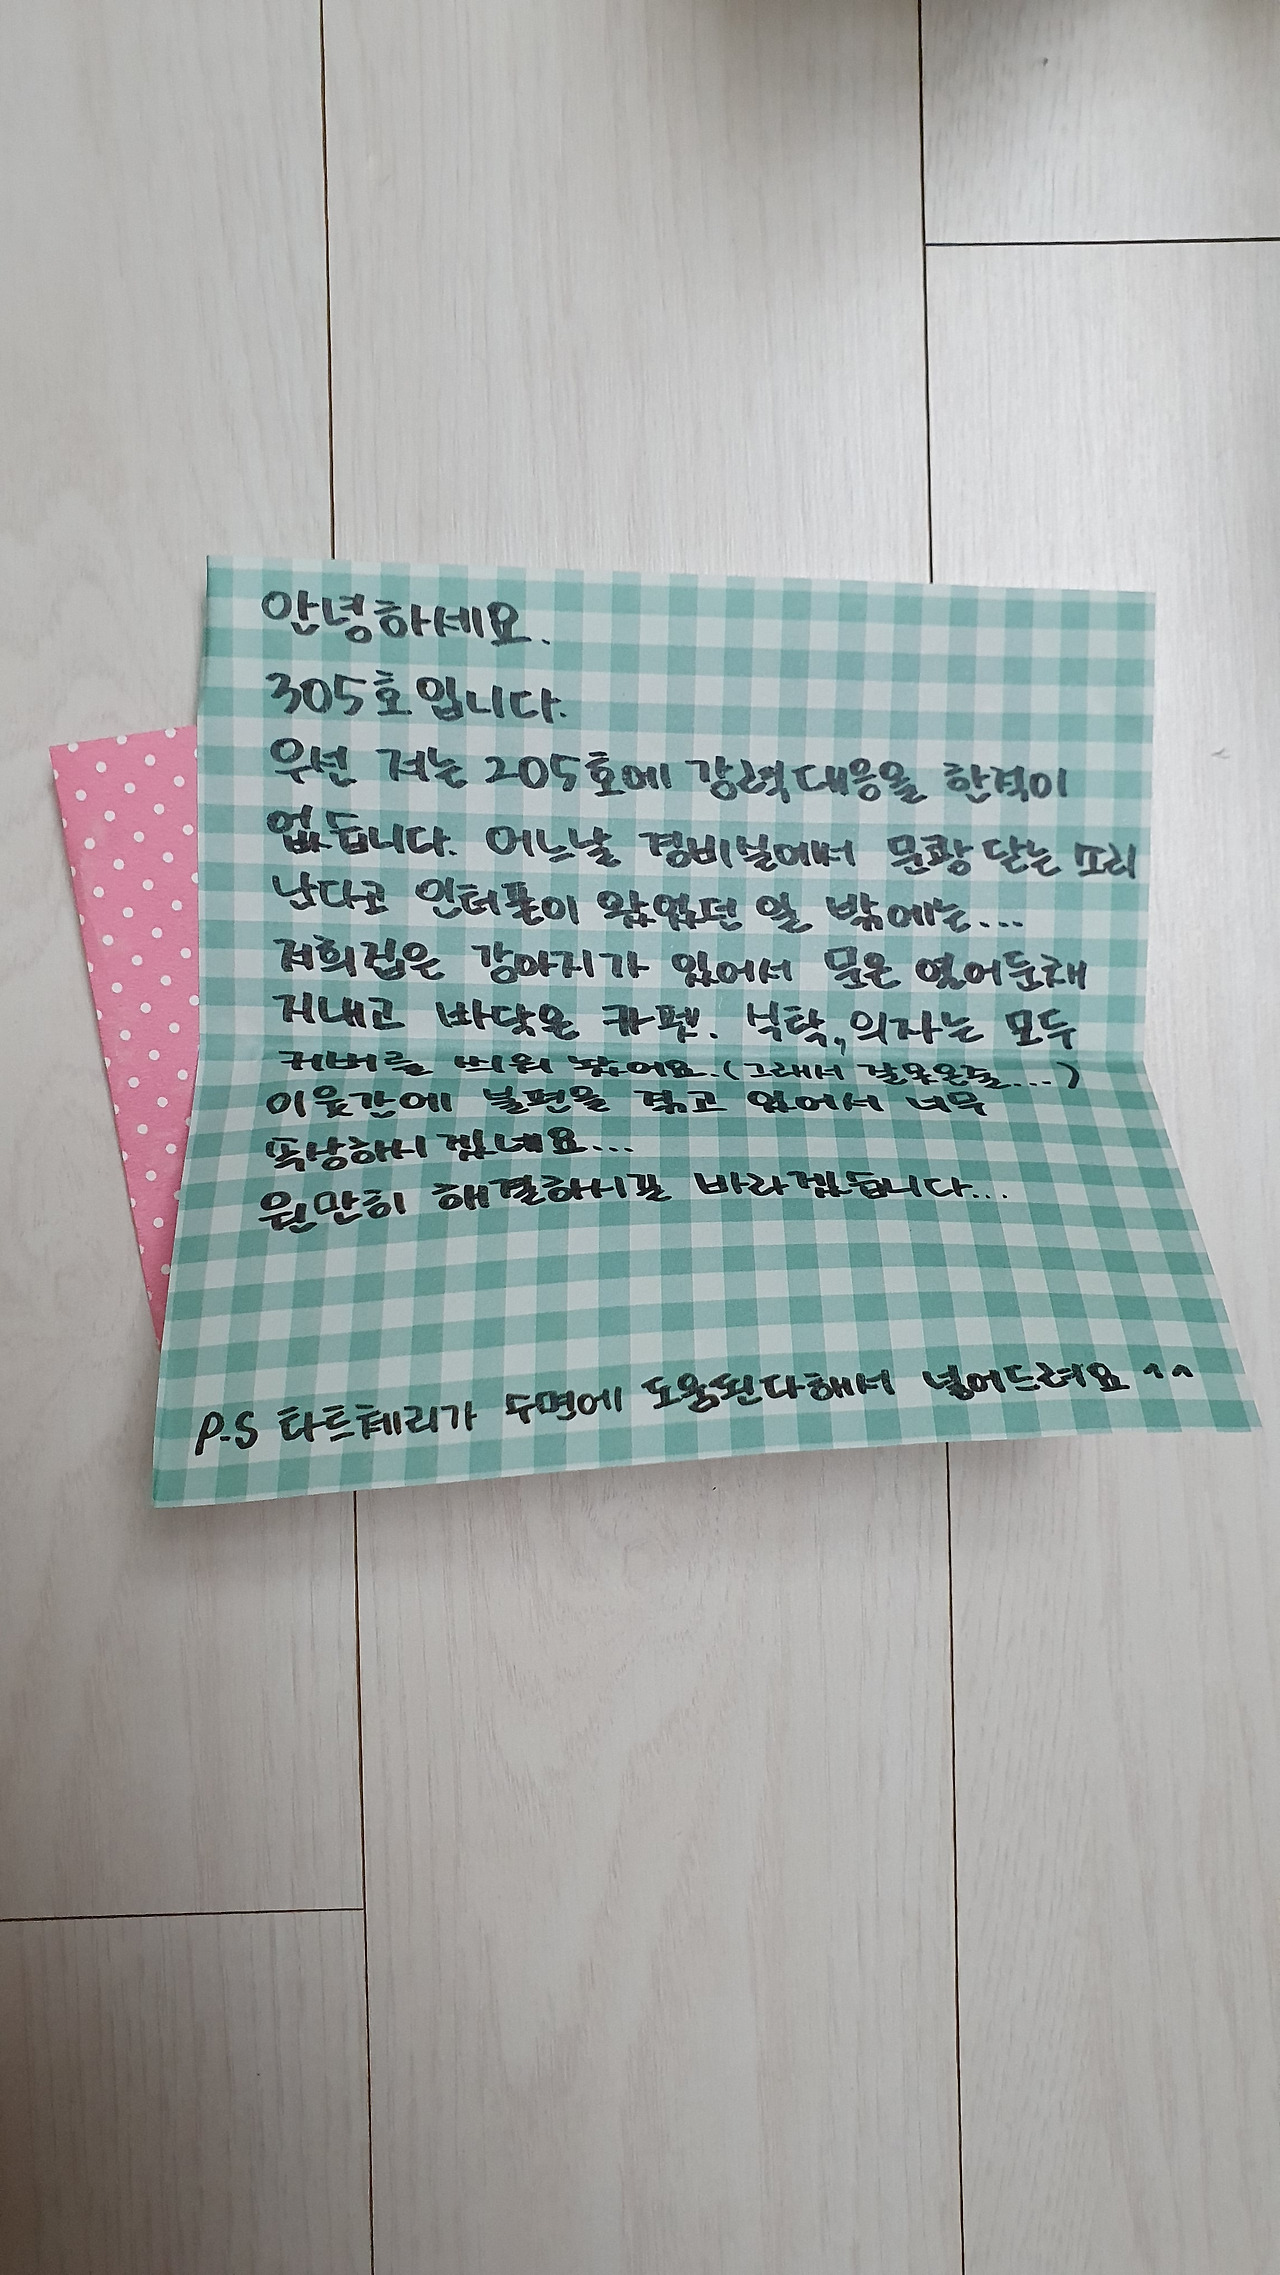 안녕하세요.
305호입니다.
우선 저는 205호에 강력대응을 한적이
없습니다. 어느날 경비실에서 문쾅 닫는 소리
난다고 인터폰이 왔었던 일 밖에는...
저희집은 강아지가 있어서 문은 열어둔채
지내고 바닥은 카펫. 식탁, 의자는 모두
커버를 씌워 놨어요. (그래서 잘못온줄...)
이웃간에 불편을 겪고 있어서 너무
속상하시겠네요...
원만히 해결하시길 바라겠습니다...
P.S 타트체리가 수면에 도움된다해서 넣어드려요 ^^